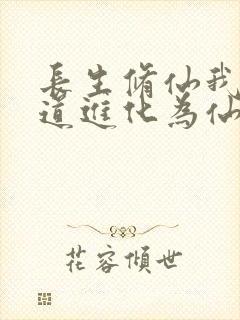 長生脩仙我
道進化為仙
花容傾世